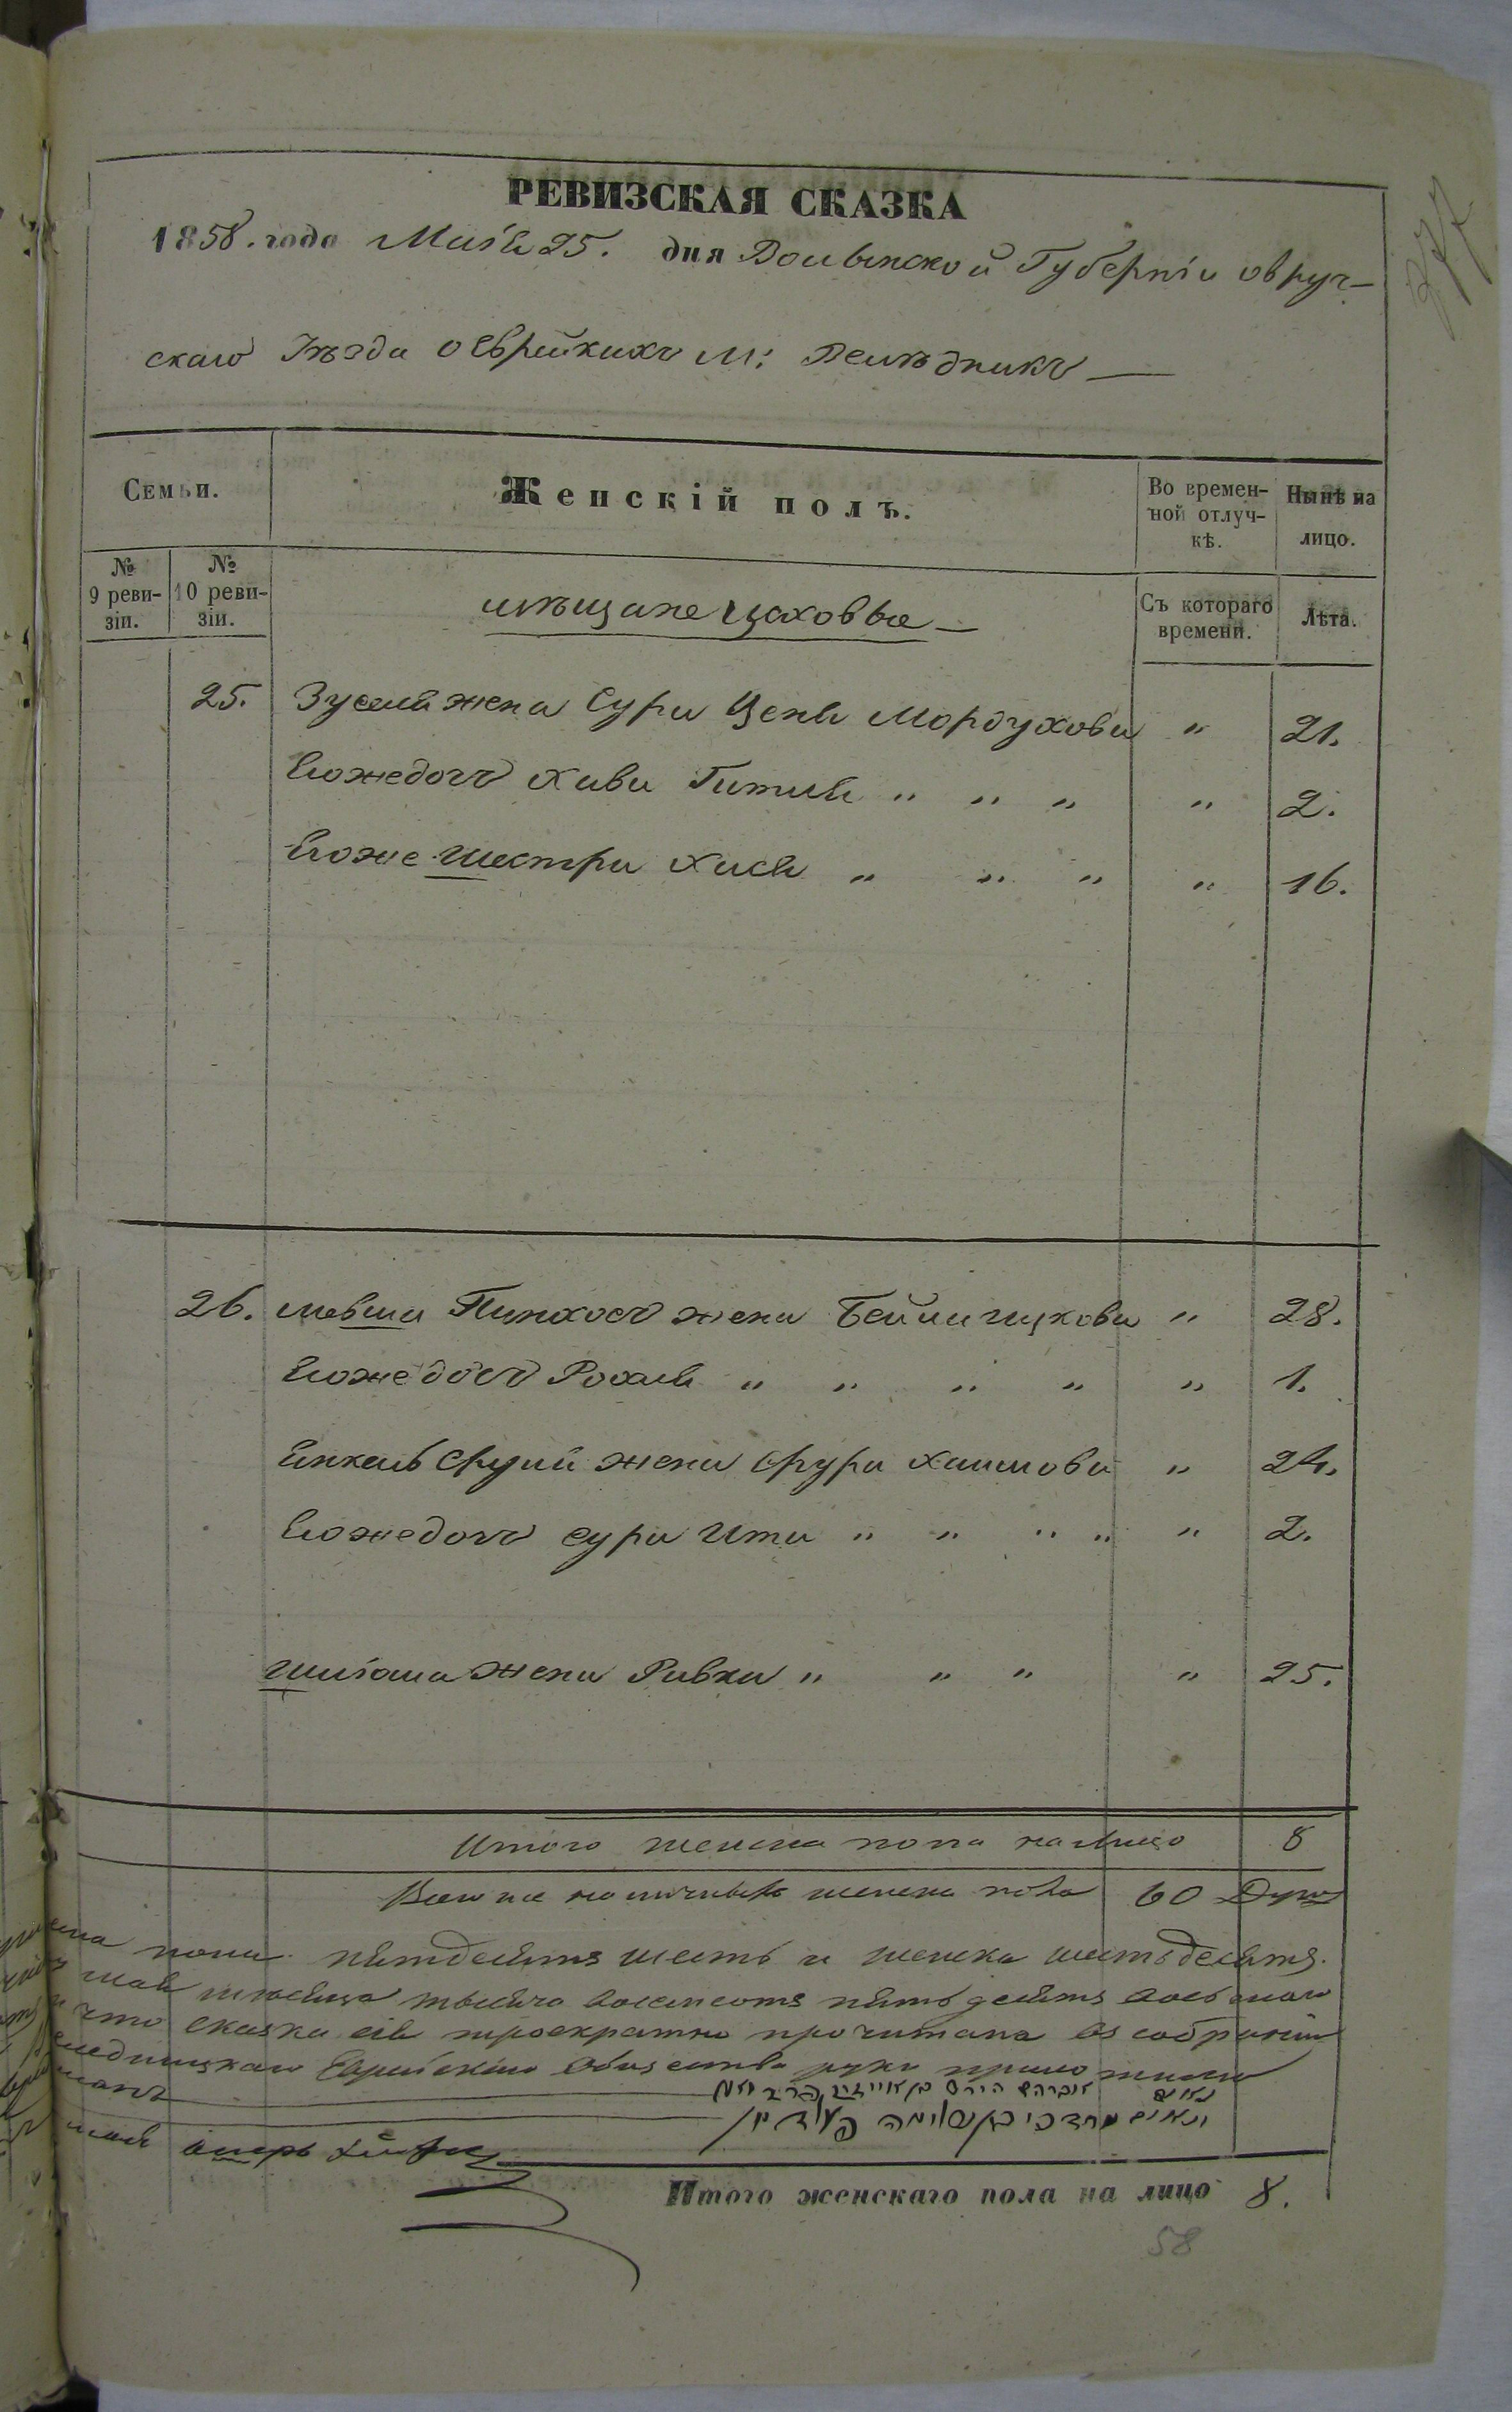 РЕВИЗСКАЯ СКАЗКА
1858. года Маія 25. дня Волынской Губерніи овруч-
скаго Уѣзда о Еврейкихъ М: Велѣдникъ
Семьи.
Женскій полъ.
Во времен-
ной отлуч-
кѣ.
Нынѣ на
лицо.
№
9 реви-
зіи.
№
10 реви-
зіи.
мѣщане цаховые
Съ котораго
времени.
Лѣта.
25. Зуселя жена Сура Ценя Мордухова " 21.
Егожедочь Хава Гитля " " " " 2.
Егоже шестра Хася " " " " 16.
26. мовша Пинхосъ жена Бейла ицкова " 28.
Егоже дочъ Рохля " " " " " 1.
Янкель Срулй жена Фрума Хаимова " 24.
Егожедочъ сура Ита " " " " " 2.
шліома жена Ривка " " " " 25.
Итого женска пола налицо 8
Всего же наличныхъ женска пола 60 Душъ
пола пятдесятъ шесть и женска шетьдесятъ.
тысяча восемсотъ пятьдесятъ восьмого
что сказка сія троекратно прочитана въ собраніи
Еврейскаго Общества руки приложили
נאום אברהם הירש בן
ונאום מרדכי בן שלימה
Итого женскаго пола на лицо 8.
58